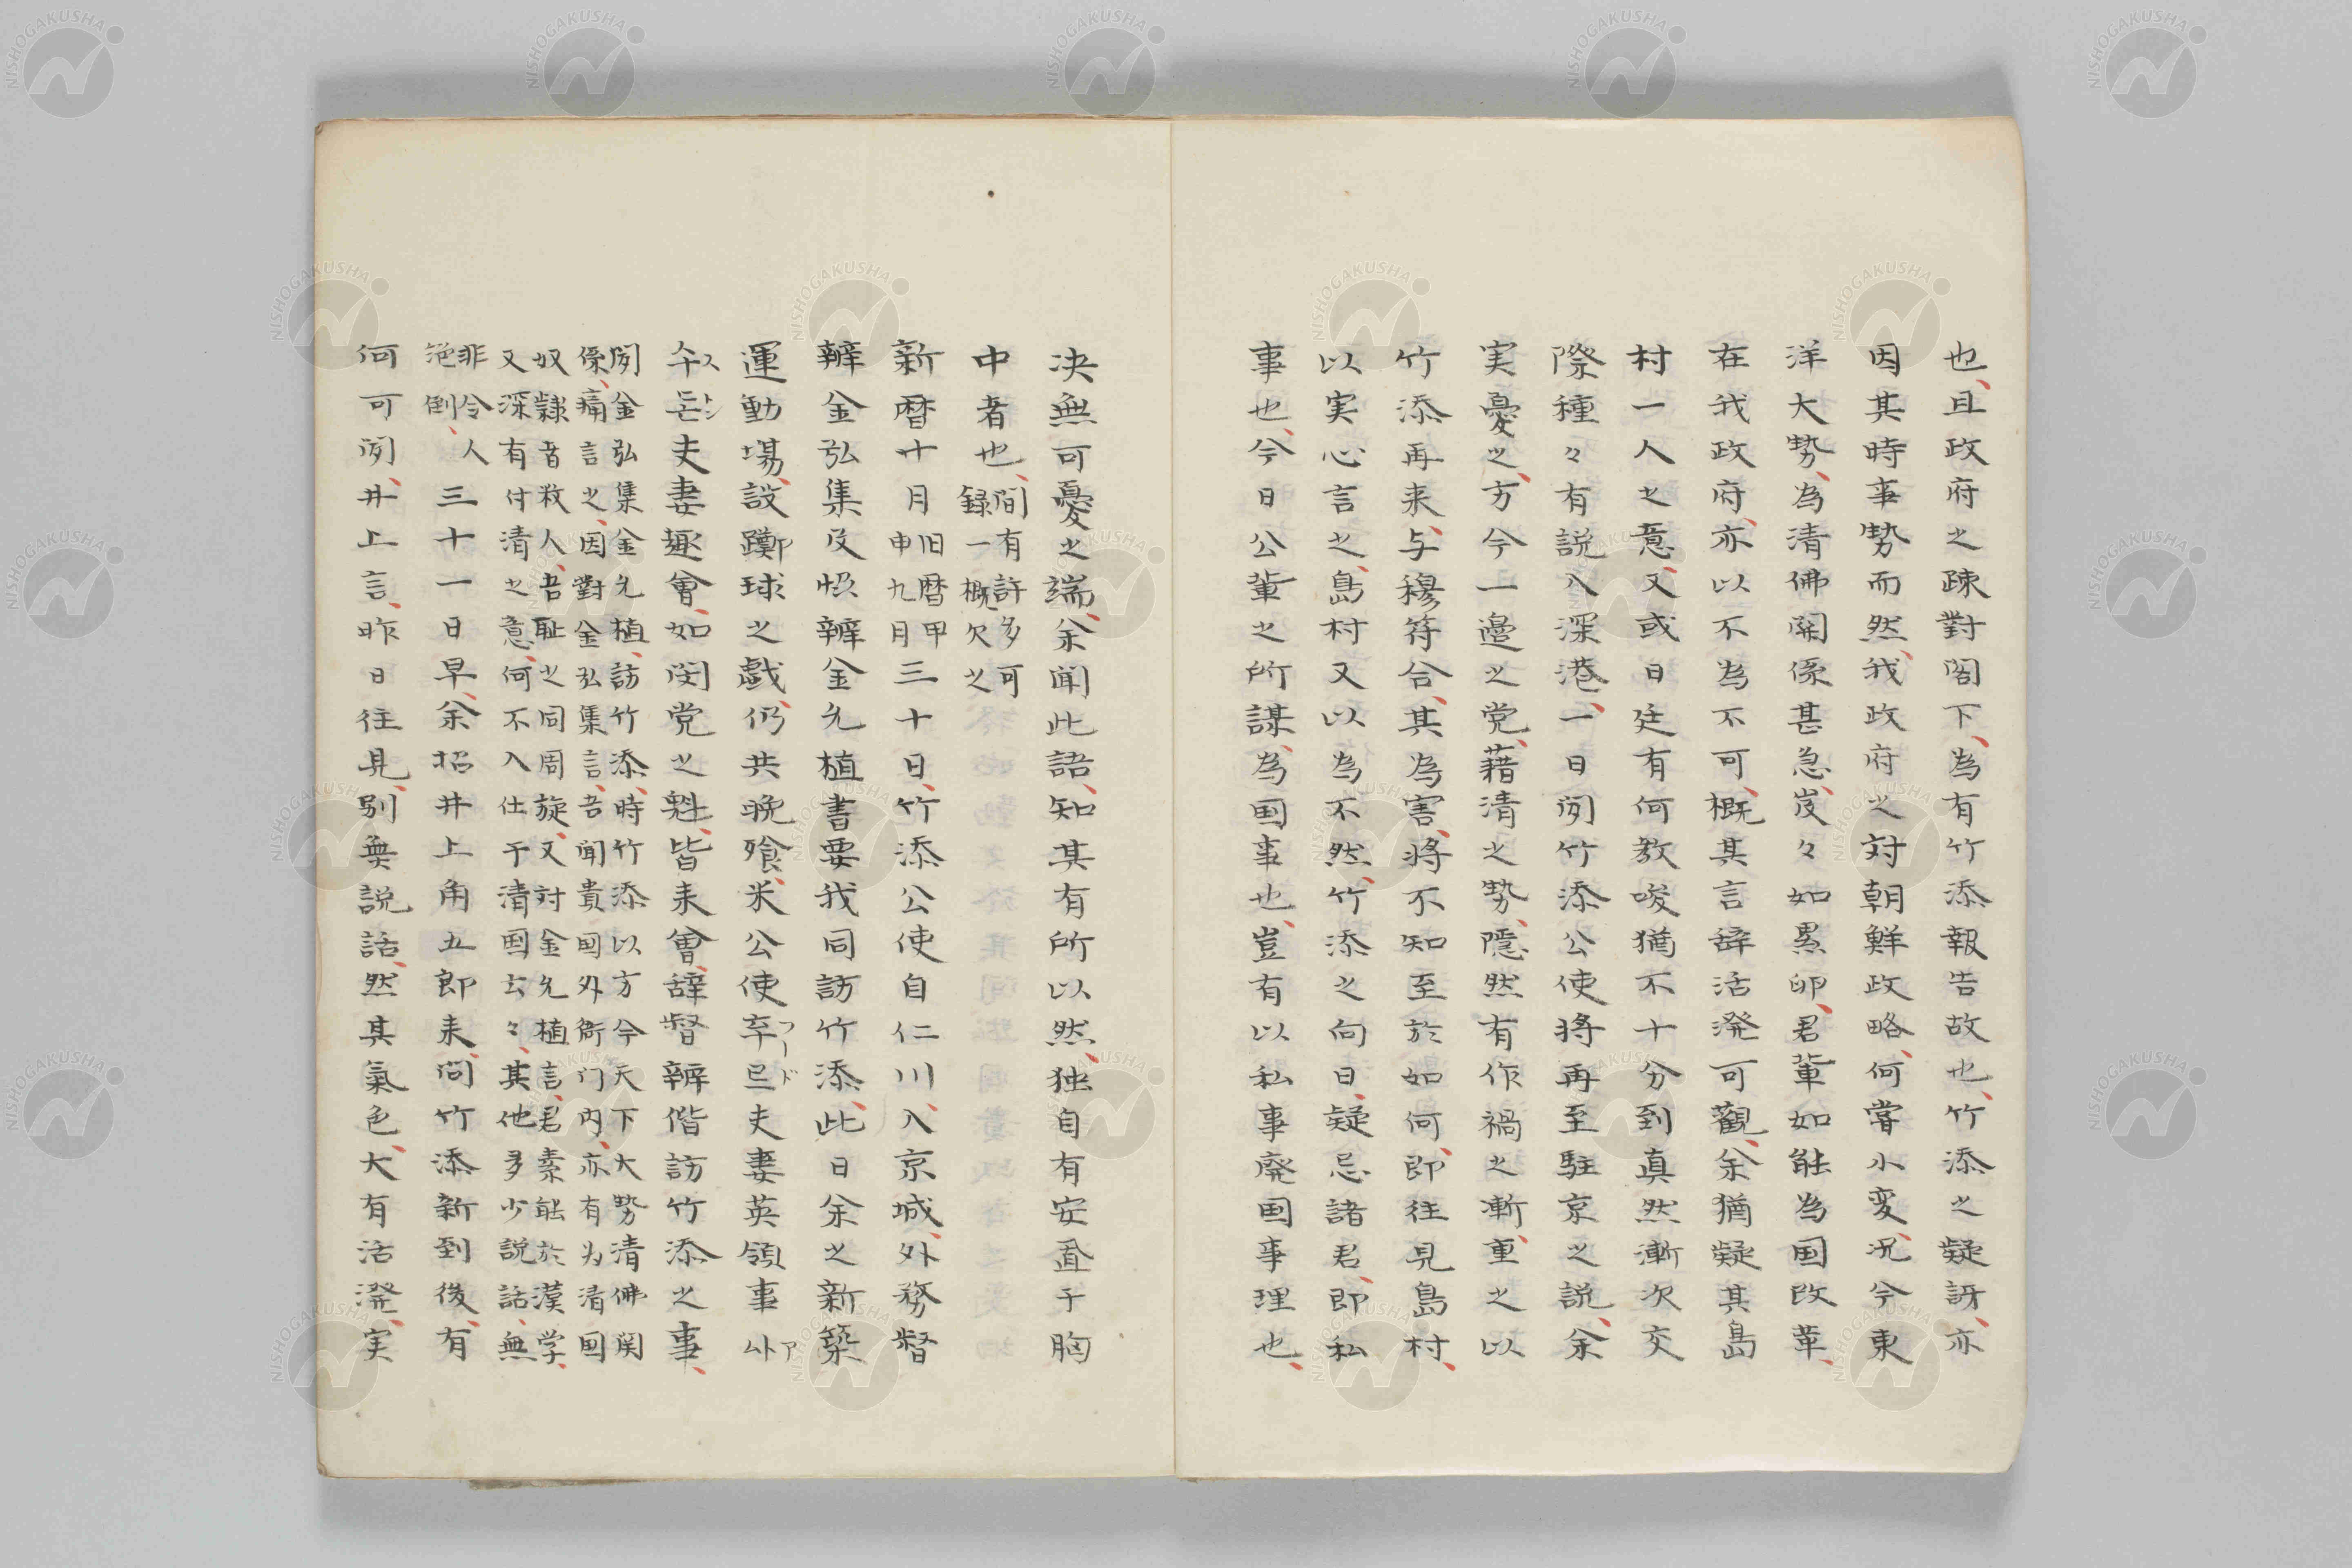 也、且政府之疎對閣下、為有竹添報告故也、竹添之疑訝、亦
因其時事勢而然、我政府之対朝鮮政略、何嘗小変、况今東
洋大勢、為清佛関係甚急、岌々如累卵、君輩如能為国改革、
在我政府、亦以不為不可、概其言辞活溌可觀、余猶疑其島
村一人之意、又或日廷有何教唆猶不十分到真然漸次交
際種々有説入深港、一日聞竹添公使将再至駐京之説、余
実憂之、方今一邉之党、藉清之勢、隠然有作禍之漸重、之以
竹添再来、与穆符合、其為害、将不知至於如何、即往見島村、
以実心言之、島村又以為不然、竹添之向日、疑忌諸君、即私
事也、今日公輩之所謀、為国事也、豈有以私事廃国事理也、
決無可憂之端、余聞此語、知其有所以然、独自有安置于胸
中者也、間有許多可録一概欠之
新暦十月旧暦甲申九月三十日、竹添公使自仁川、入京城、外務督
辦金弘集及恊辦金允植書要我同訪竹添、此日余之新築
運動場、設躑球之戯、仍共晩飱、米公使후드夫妻英領事아
수돈夫妻邀會、如閔党之魁、皆来會、辞督辦偕訪竹添之事、
聞金弘集金允植、訪竹添、時竹添以方今天下大勢清佛関
係、痛言之、因對金弘集言、吾聞貴国外衙门内、亦有为清国
奴隷者数人、吾恥之同周旋、又対金允植言、君素能於漢学、
又深有付清之意、何不入仕于清国云々、其他多少説話、無
非令人絶倒、三十一日早、余招井上角五郎来、问竹添新到後、有
何可聞、井上言、昨日往見、別無説話、然其氣色、大有活溌、実
NISHOGAKUSHA